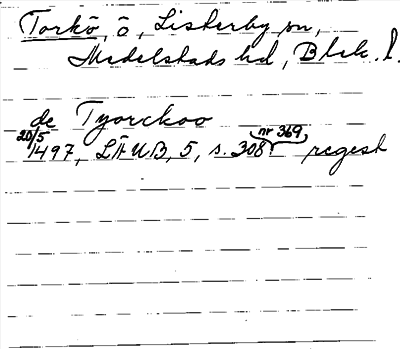 Torkö, ö, Listerby sn,
Medelstads hd, Blek. l.
de Tyorckoo
20/5 1497, LÄUB, 5, s. 308 nr 369, regest